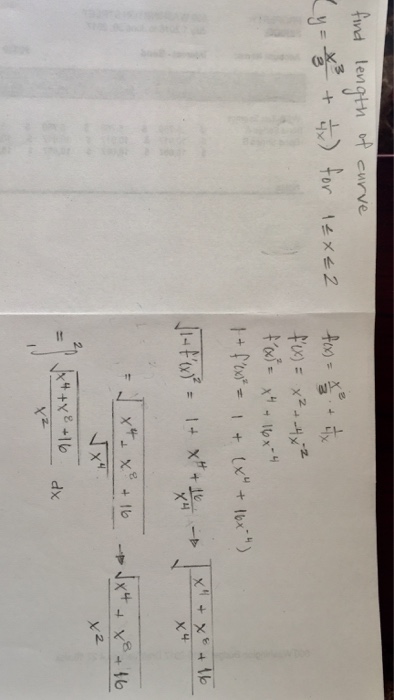 find length of curve
(y = x³/3 + 1/4x) for 1 ≤ x ≤ 2
f(x) = x³/3 + 1/4x
f'(x) = x² + -4x⁻²
f'(x)² = x⁴ + 16x⁻⁴
1 + f'(x)² = 1 + (x⁴ + 16x⁻⁴)
√(1+f'(x)²) = 1 + x⁴ + 16/x⁴ → √((x⁴ + x⁸ + 16)/x⁴)
= √(x⁴ + x⁸ + 16)/√(x⁴) → √(x⁴ + x⁸ + 16)/x²
= ∫₁² √(x⁴ + x⁸ + 16)/x² dx